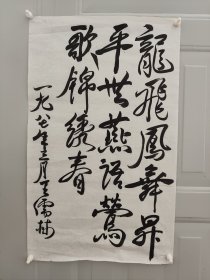 龍飛鳳舞昇
平世燕語鶯
歌錦繡春
一九八七年三月王儒林